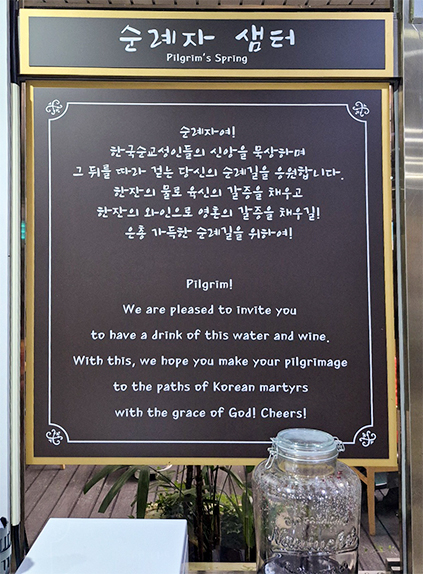 순례자 샘터
Pilgrim's Spring
순례자여!
한국순교성인들의 신앙을 묵상하며
그 뒤를 따라 걷는 당신의 순례길을 응원합니다.
한잔의 물로 육신의 갈증을 채우고
한잔의 와인으로 영혼의 갈증을 채우길!
은총 가득한 순례길을 위하여!
Pilgrim!
We are pleased to invite you
to have a drink of this water and wine.
With this, we hope you make your pilgrimage
to the paths of Korean martyrs
with the grace of God! Cheers!